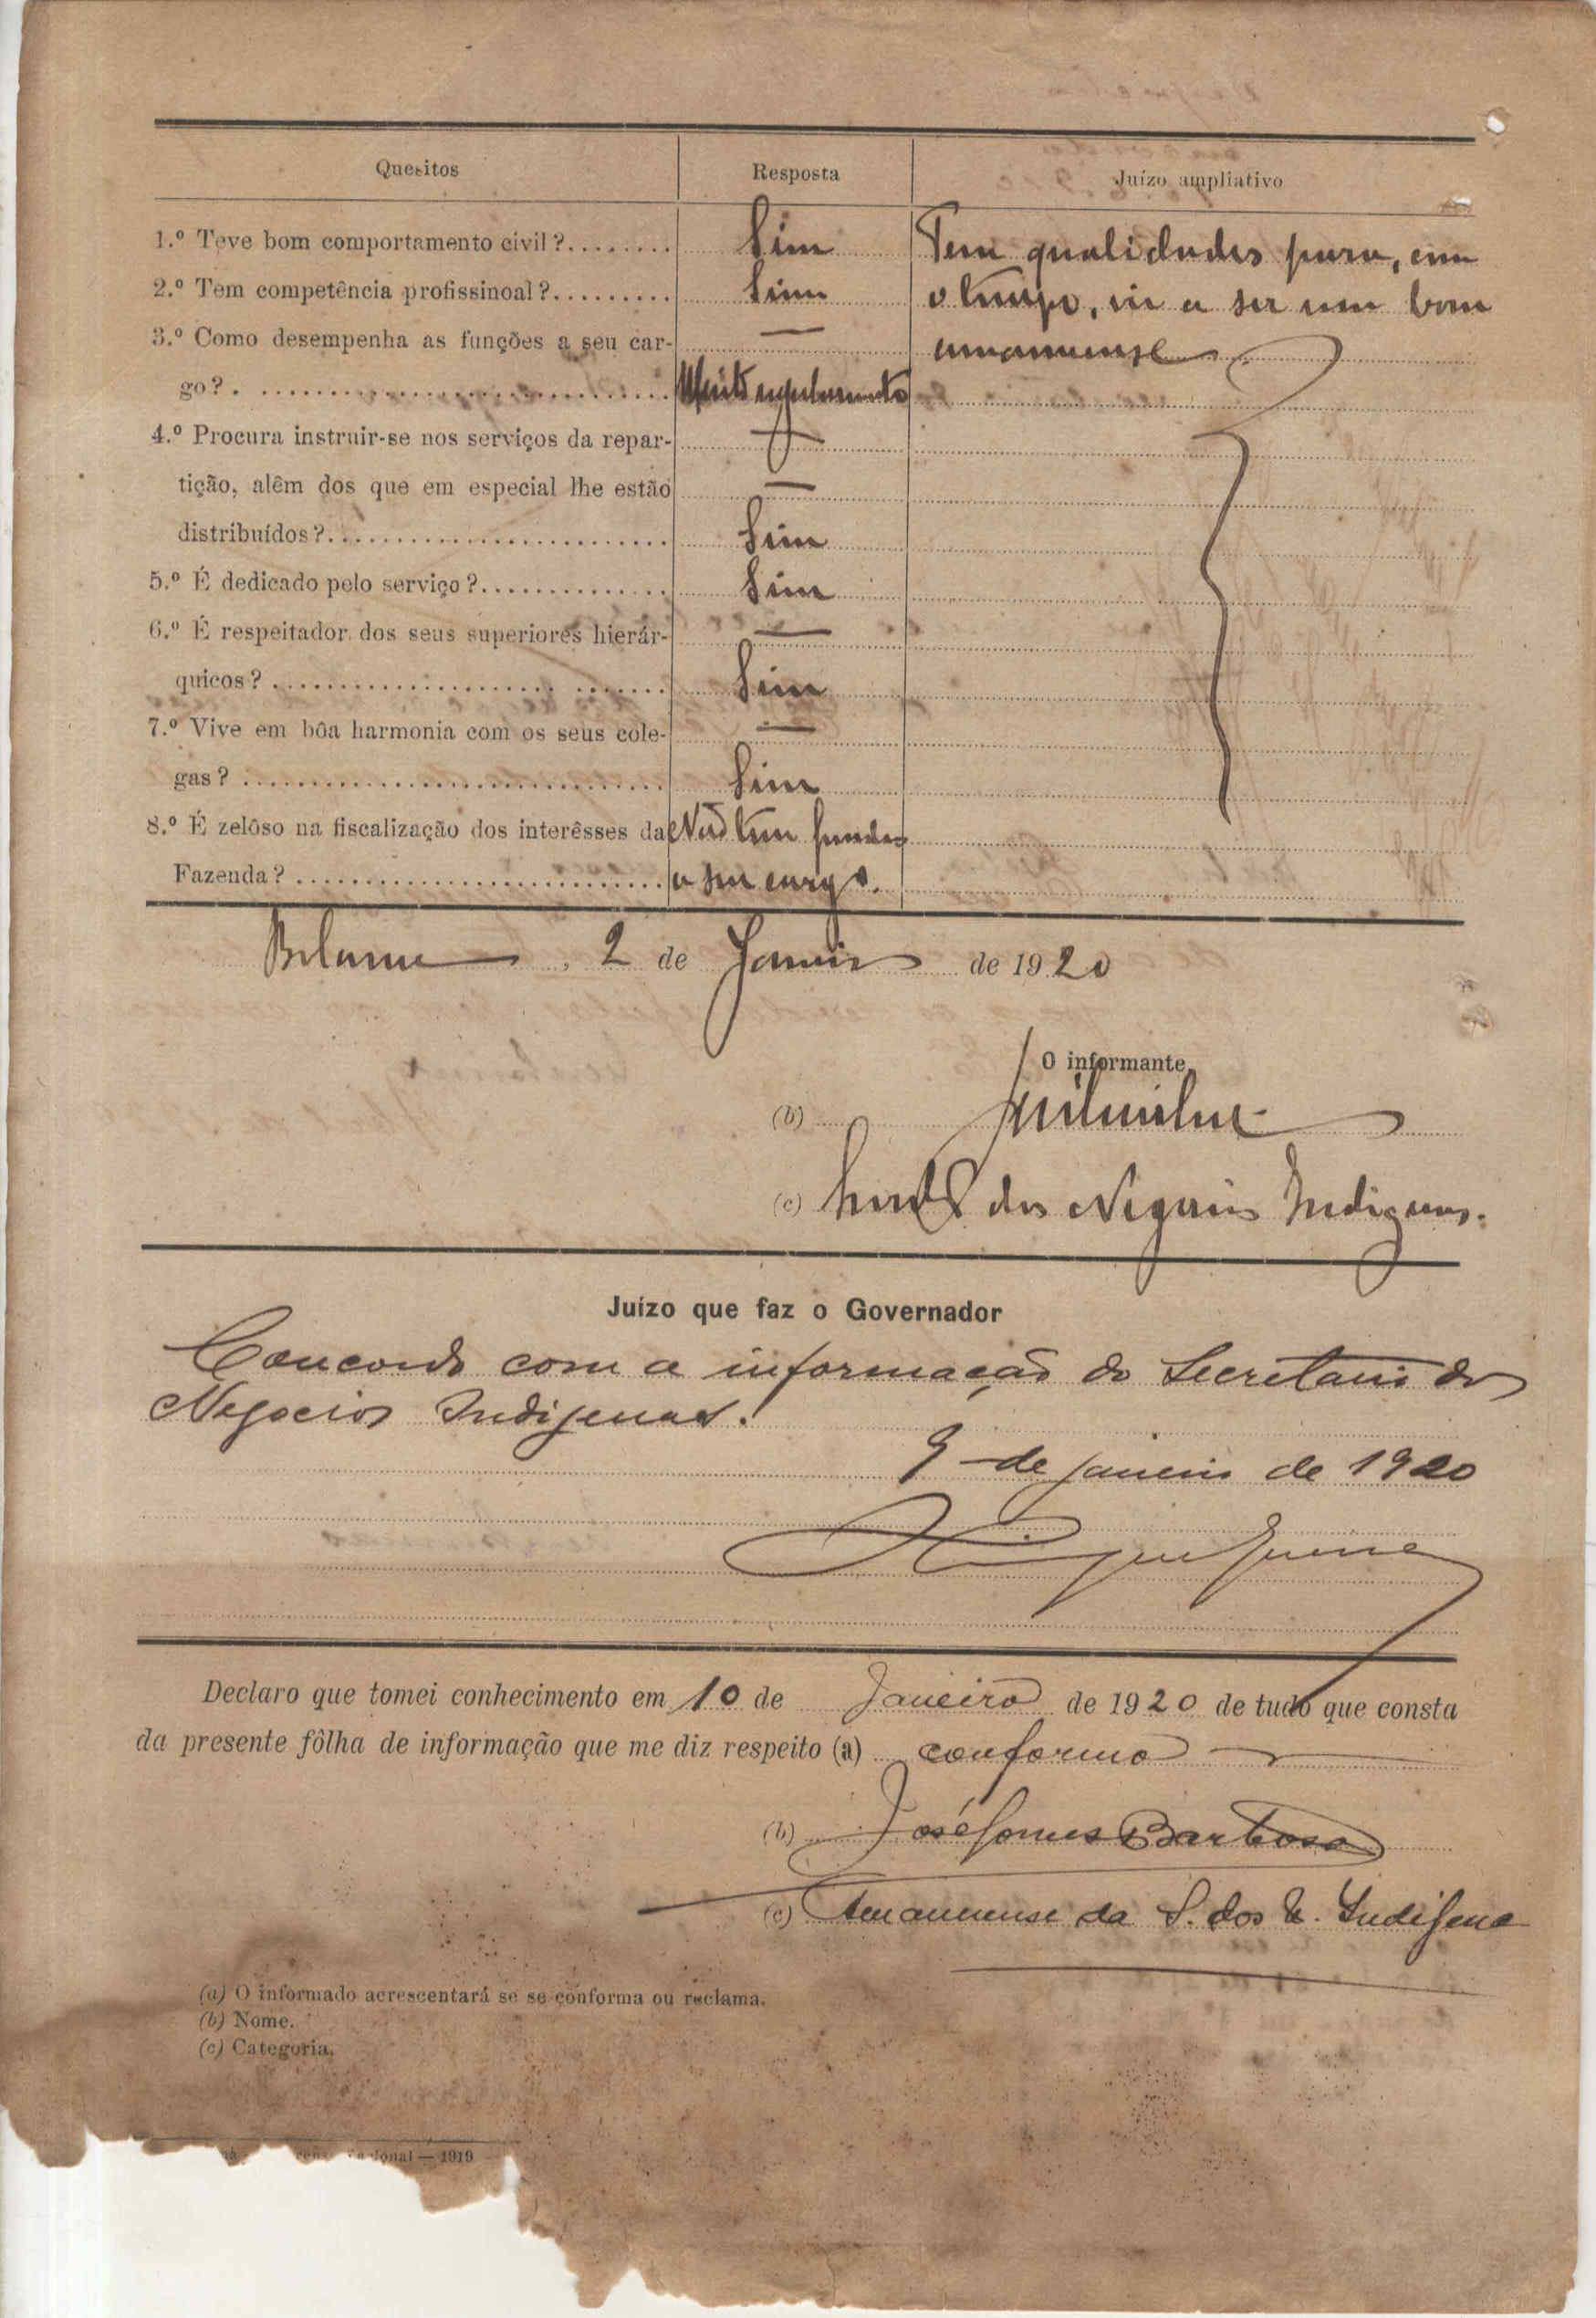 Quesitos Resposta Juízo ampliativo
1.º Teve bom comportamento civil?........ Sim Tem qualidades para, com
2.º Tem competência profissinoal?......... Sim o tempo, vir a ser um bom
3.º Como desempenha as funções a seu car- — amanuense
go?. .............................. Muito regularmente
4.º Procura instruir-se nos serviços da repar-
tição, alêm dos que em especial lhe estão —
distribuídos?......................... Sim
5.º É dedicado pelo serviço?.............. Sim
6.º É respeitador dos seus superiores hierár- —
quicos? ..................... ....... Sim
7.º Vive em bôa harmonia com os seus cole- —
gas? ............................... Sim
8.º É zelôso na fiscalização dos interêsses da Não tem fundos
Fazenda? ........................... a seu cargo.
Bolama, 2 de Janeiro de 1920
O informante,
(b)
(c) dos Negocios Indigenas.
Juízo que faz o Governador
Concordo com a informação do Secretario dos
Negocios Indigenas.
9 de janeiro de 1920
Declaro que tomei conhecimento em 10 de Janeiro de 1920 de tudo que consta
da presente fôlha de informação que me diz respeito (a) conformo
(b) José Gomes Barbosa
(c) Amanuense da S. dos N. Indigena
(a) O informado acrescentará se se conforma ou reclama.
(b) Nome.
(c) Categoria.
1919